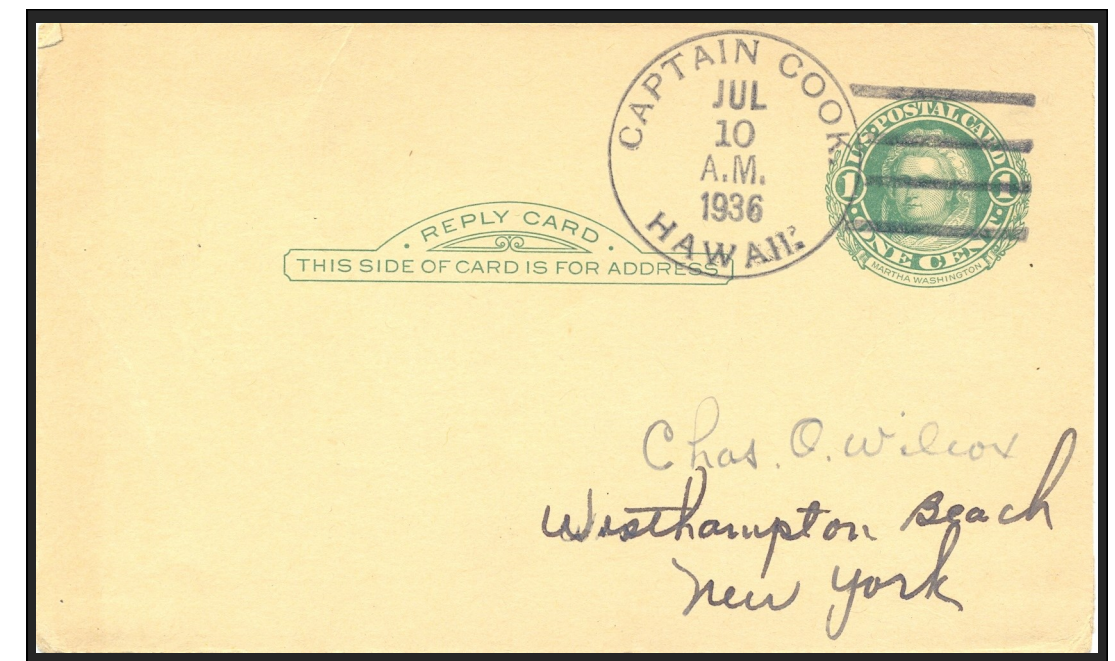 CAPTAIN COOK
JUL
10
A.M.
1936
HAWAII.
U.S. POSTAL CARD
1 1
ONE CENT
MARTHA WASHINGTON
· REPLY CARD ·
THIS SIDE OF CARD IS FOR ADDRESS
Chas. O. Wilcox
Westhampton Beach
New York